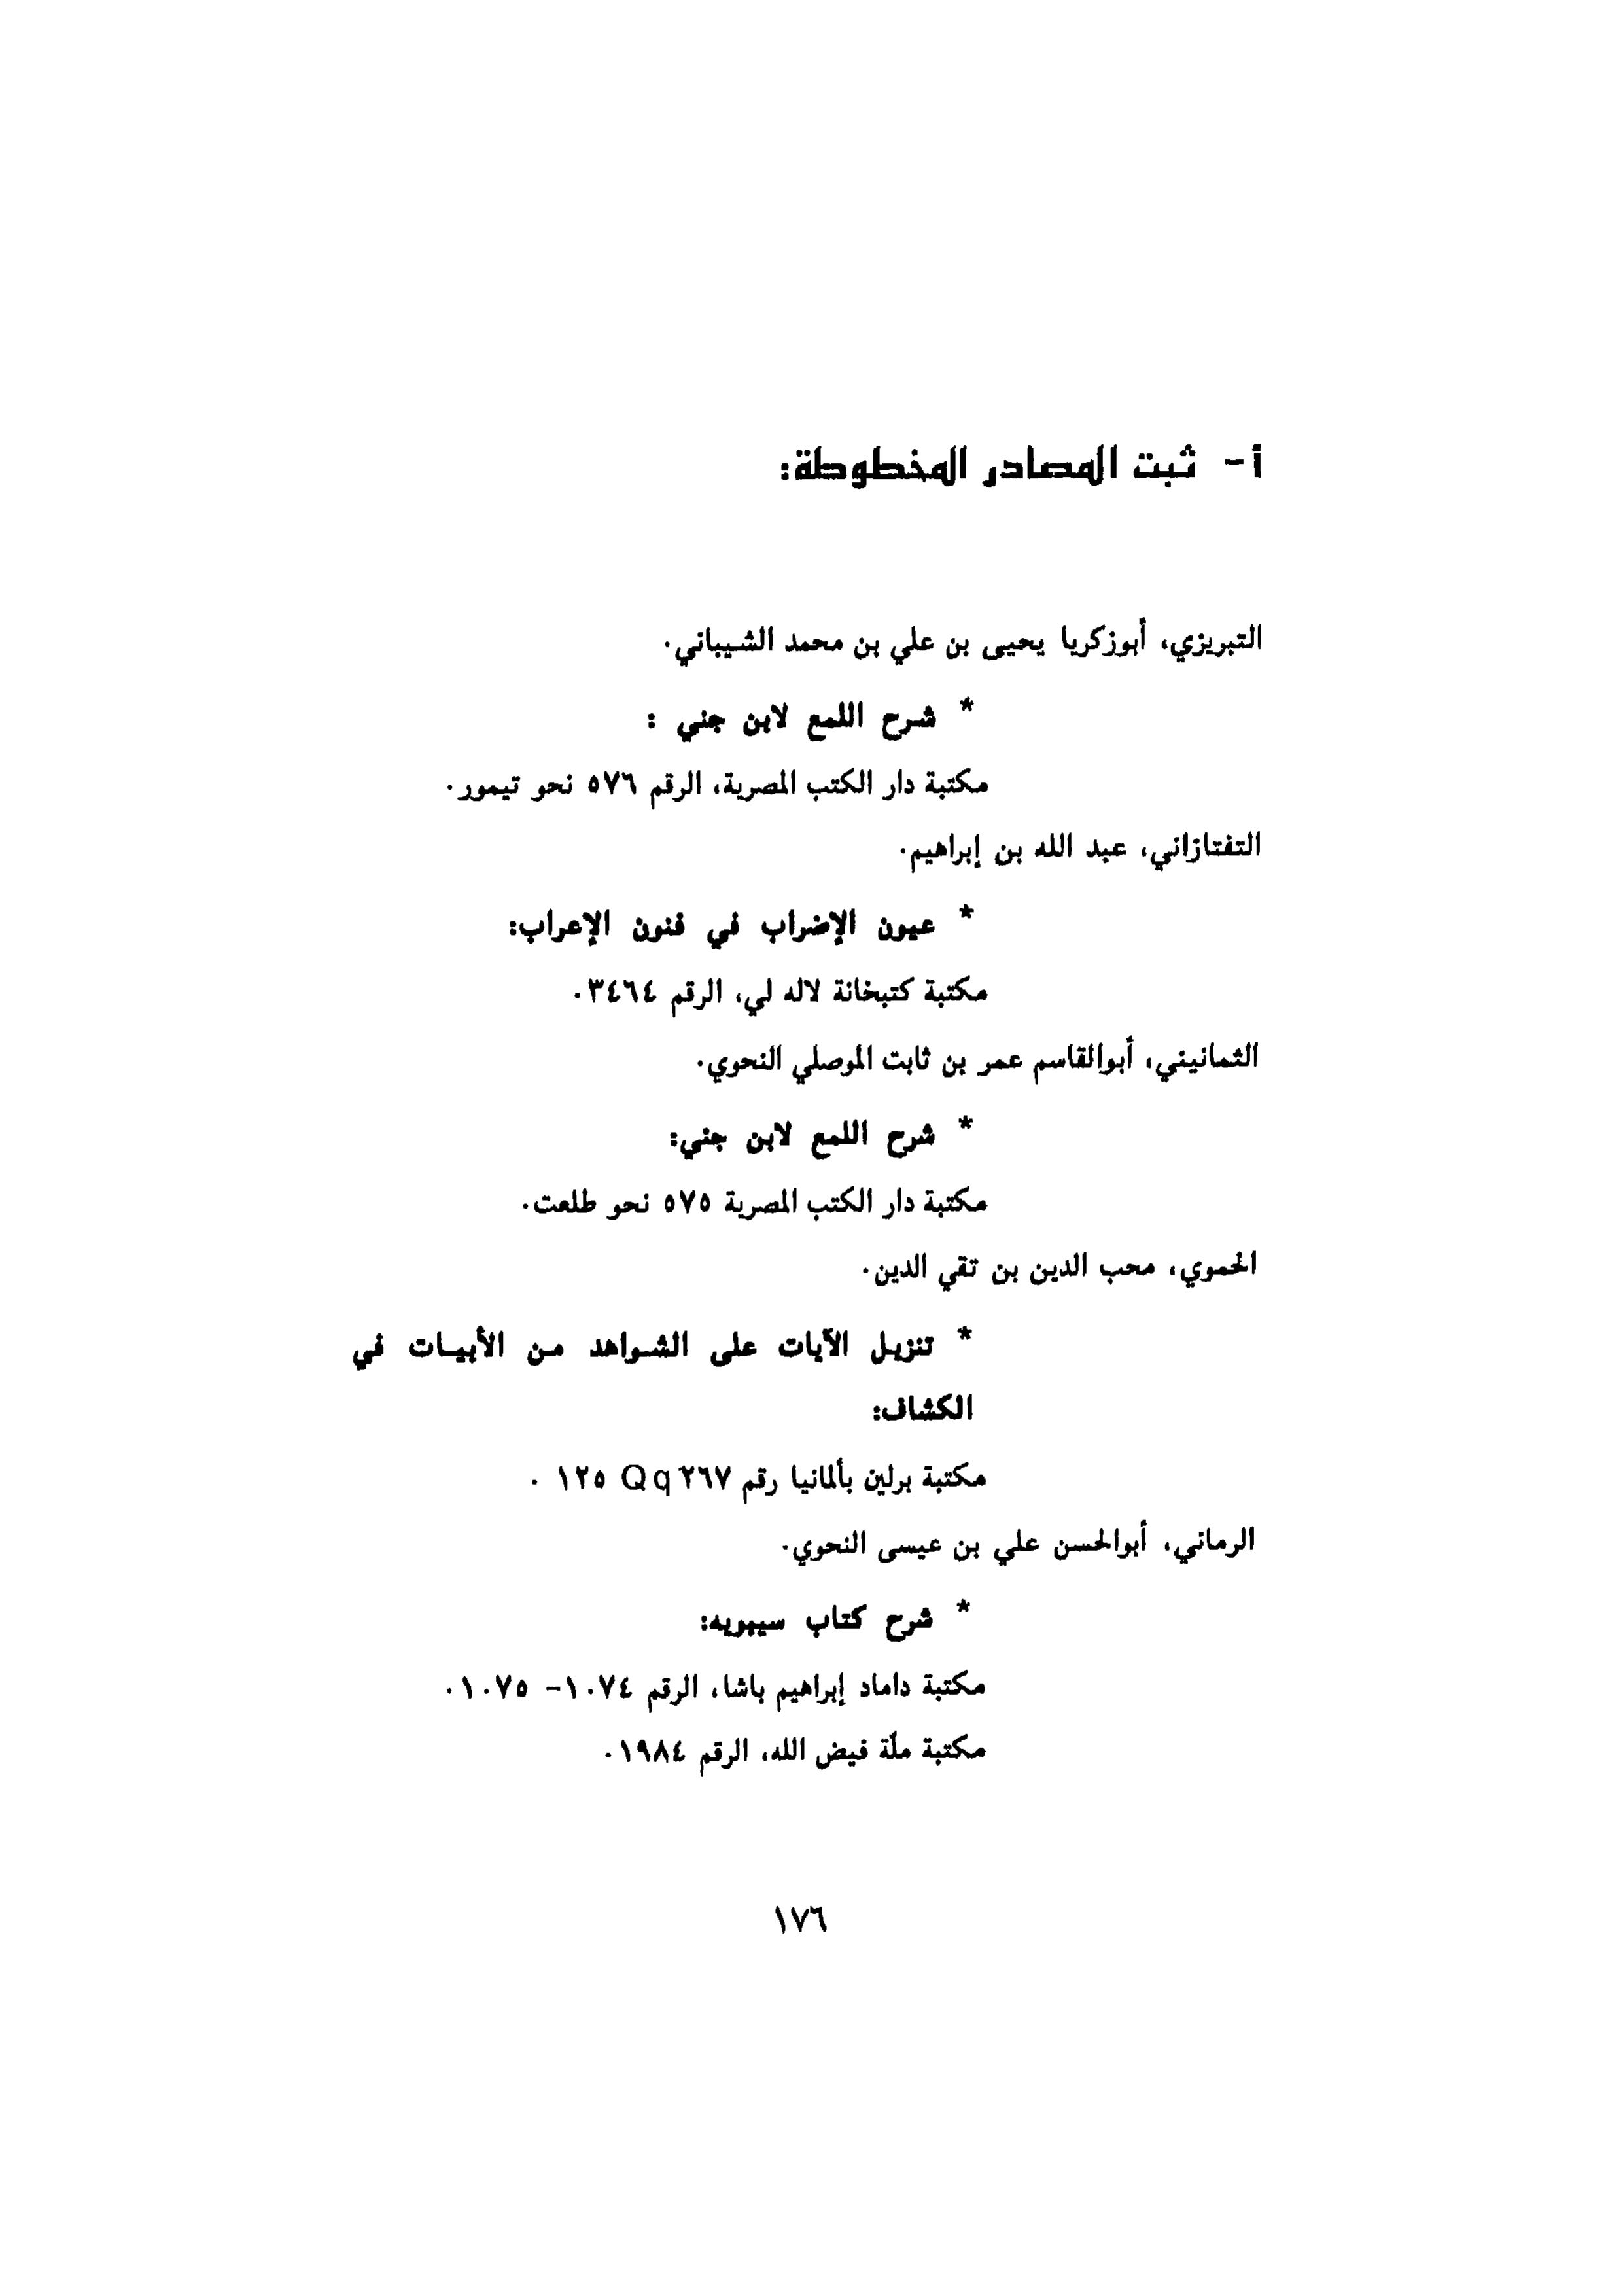 أ- ثبت المصادر المخطوطة:
التبريزي، أبوزكريا يحيى بن علي بن محمد الشيباني.
* شرح اللمع لابن جني :
مكتبة دار الكتب المصرية، الرقم ٥٧٦ نحو تيمور.
التفتازاني، عبد الله بن إبراهيم.
* عيون الإضراب في فنون الإعراب:
مكتبة كتبخانة لاله لي، الرقم ٣٤٦٤.
الثمانيني، أبوالقاسم عمر بن ثابت الموصلي النحوي.
* شرح اللمع لابن جني:
مكتبة دار الكتب المصرية ٥٧٥ نحو طلعت.
الحموي، محب الدين بن تقي الدين.
* تنزيل الآيات على الشواهد من الأبيات في
الكشاف:
مكتبة برلين بألمانيا رقم ٢٦٧ Qq ١٢٥ .
الرماني، أبوالحسن علي بن عيسى النحوي.
* شرح كتاب سيبويه:
مكتبة داماد إبراهيم باشا، الرقم ١٠٧٤- ١٠٧٥.
مكتبة ملّة فيض الله، الرقم ١٩٨٤.
١٧٦